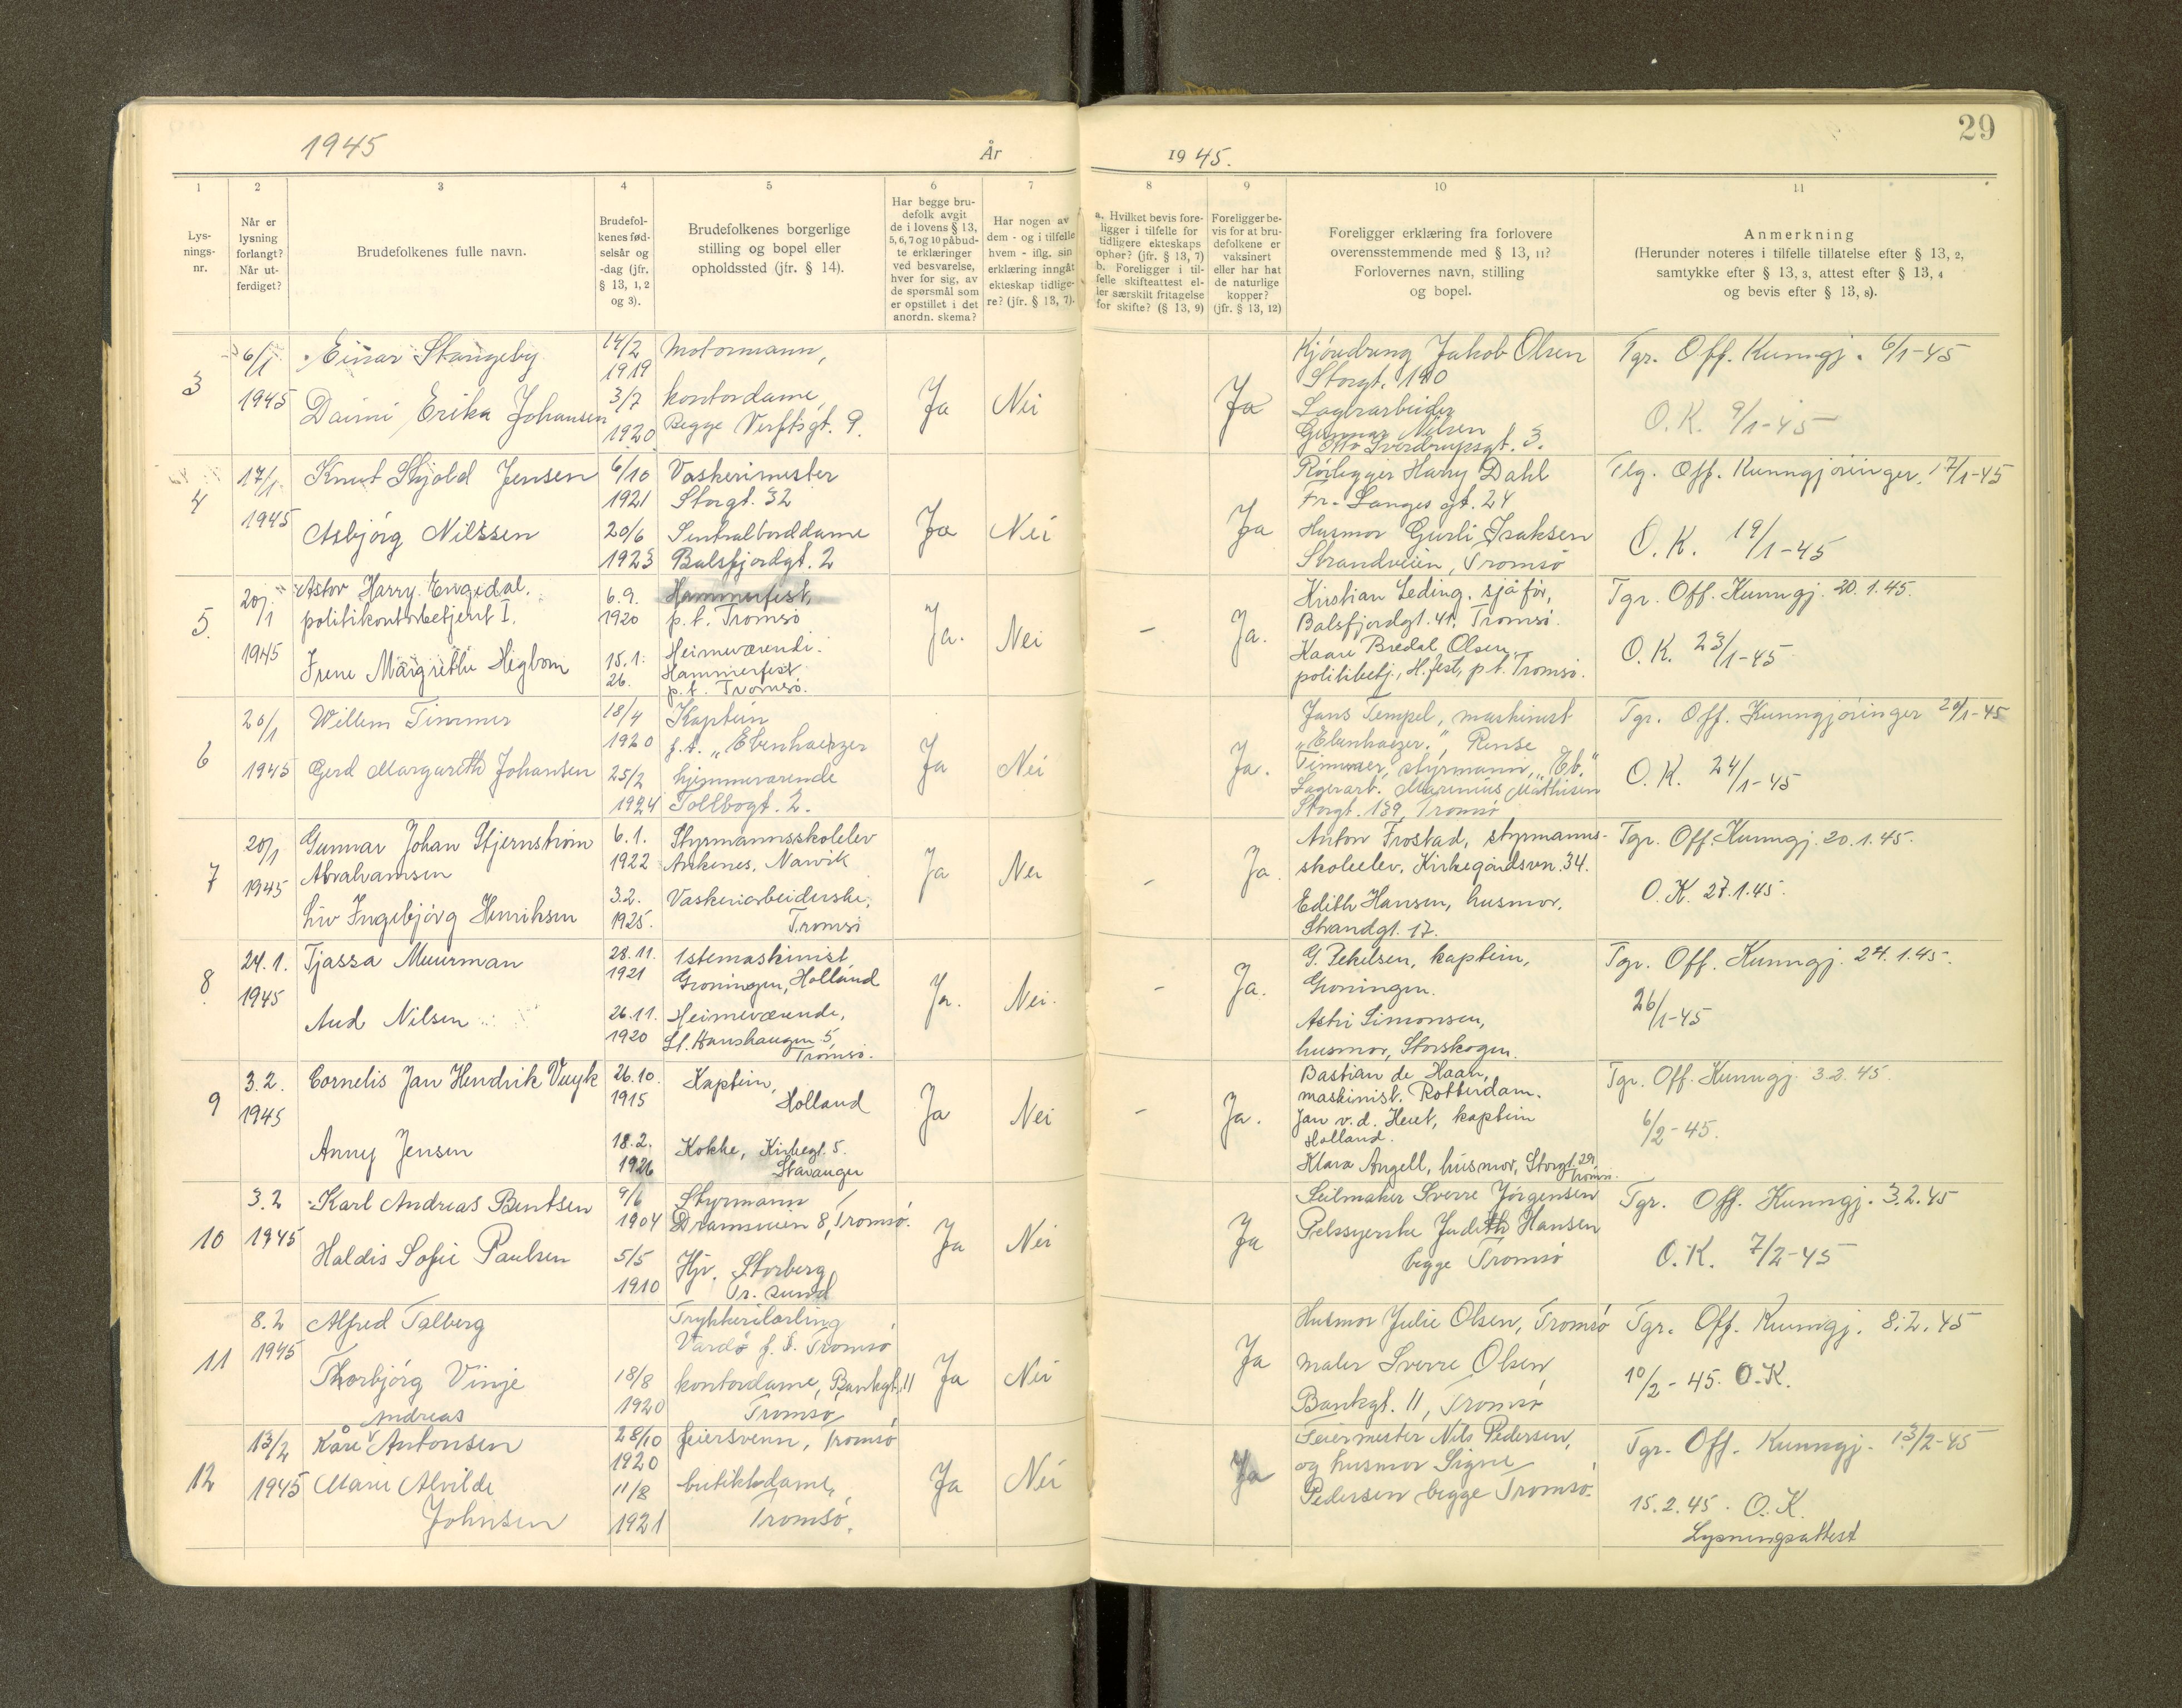 1945
År
1945.
29
1
2
3
4
5
6
7
8
9
10
11
Lys-
nings-
nr.
Når er
lysning
forlangt?
Når ut-
ferdiget?
Brudefolkenes fulle navn.
Brudefol-
kenes fød-
selsår og
-dag (jfr.
§ 13, 1, 2
og 3).
Brudefolkenes borgerlige
stilling og bopel eller
opholdssted (jfr. § 14).
Har begge bru-
defolk avgit
de i lovens § 13,
5, 6, 7 og 10 påbud-
te erklæringer
ved besvarelse,
hver for sig, av
de spørsmål som
er opstillet i det
anordn. skema?
Har nogen av
dem - og i tilfelle
hvem - iflg. sin
erklæring inngåt
ekteskap tidlige-
re? (jfr. § 13, 7).
a. Hvilket bevis fore-
ligger i tilfelle for
tidligere ekteskaps
ophør? (jfr. § 13, 7)
b. Foreligger i til-
felle skifteattest el-
ler særskilt fritagelse
for skifte? (§ 13, 9)
Foreligger be-
vis for at bru-
defolkene er
vaksinert
eller har hat
de naturlige
kopper?
(jfr. § 13, 12)
Foreligger erklæring fra forlovere
overensstemmende med § 13, 11?
Forlovernes navn, stilling
og bopel.
Anmerkning
(Herunder noteres i tilfelle tillatelse efter § 13, 2,
samtykke efter § 13, 3, attest efter § 13, 4
og bevis efter § 13, 8).
3
6/1
1945
Einar Stangeby
Daimi Erika Johansen
14/2
1919
3/7
1920
Motormann,
kontordame,
Begge Verftsgt. 9.
Ja
Nei
Ja
Kjøredreng Jakob Olsen
Storgt. 140
Lagerarbeider
Gunnar Nilsen
Otto Sverdrupsgt. 3.
Tgr. Off. Kunngj. 6/1-45
O.K. 9/1-45
4
17/1
1945
Knut Skjold Jensen
Asbjørg Nilssen
6/10
1921
20/6
1923
Vaskerimester
Storgt. 32
Sentralborddame
Balsfjordgt. 2
Ja
Nei
Ja
Rørlegger Harry Dahl
Fr. Langes gt. 24
Husmor Gurli Isaksen
Strandveien, Tromsø
Tlg. Off. Kunngjøringer. 17/1-45
O.K. 19/1-45
5.
20/1
1945
Astor Harry Engedal.
politikontorbetjent I.
Irene Margrethe Høgbom
6.9.
1920
15.1.
26.
Hammerfest,
p.t. Tromsø
Heimeværende.
Hammerfest
p.t. Tromsø.
Ja.
Nei
-
Ja.
Kristian Leding, sjåfør,
Balsfjordgt. 41, Tromsø.
Kaare Bredal Olsen,
politibetj., H.fest, p.t. Tromsø.
Tgr. Off. Kunngj. 20.1.45.
O.K. 23/1-45
6
20/1
1945
Willem Timmer
Gerd Margareth Johansen
18/4
1920
25/2
1924
Kaptein
f.t. „Ebenhaezer
hjemmeværende
Tollbogt. 2.
Ja
Nei
Ja.
Jans Tempel, maskinist
„Ebenhaezer.", Rense
Timmer, styrmann, „Eb."
Lagerarb. Marinius Mathisen
Storgt. 139, Tromsø
Tgr. Off. Kunngjøringer 20/1-45
O.K. 24/1-45
7
20/1
1945
Gunnar Johan Stjernstrøm
Abrahamsen
Liv Ingebjørg Henriksen
6.1.
1922
3.2.
1925.
Styrmannsskolelev
Ankenes, Narvik
Vaskeriarbeiderske,
Tromsø
Ja
Nei
-
Ja.
Anton Frostad, styrmanns-
skoleelev, Kirkegårdsvn. 34.
Edith Hansen, husmor,
Strandgt. 17.
Tgr. Off. Kunngj. 20.1.45.
O.K. 27.1.45.
8
24.1.
1945
Tjassa Muurman
Aud Nilsen
28.11.
1921
26.11.
1920
1stemaskinist,
Groningen, Holland
Heimeværende,
St. Hanshaugen 5,
Tromsø.
Ja.
Nei.
-
Ja.
G. Pekelsen, kaptein,
Groningen.
Astri Simonsen,
husmor, Storskogen.
Tgr. Off. Kunngj. 24.1.45.
26/1-45
9
3.2.
1945
Cornelis Jan Hendrik Vuyk
Anny Jensen
26.10.
1915
18.2.
1926
Kaptein,
Holland
Kokke, Kirkegt. 5.
Stavanger
Ja
Nei
-
Ja.
Bastian de Haan,
maskinist, Rotterdam.
Jan v.d. Heut, kaptein
Holland.
Klara Angell, husmor, Storgt. 29,
Tromsø.
Tgr. Off. Kunngj. 3.2.45.
6/2-45.
10
3.2
1945
Karl Andreas Bentsen
Haldis Sofie Paulsen
9/6
1904
5/5
1910
Styrmann
Dramsveien 8, Tromsø.
Hjv. Storberg
Tr. sund
Ja
Nei
Ja
Seilmaker Sverre Jørgensen
Pelssyerske Judith Hansen
begge Tromsø
Tgr. Off. Kunngj. 3.2.45
O.K. 7/2-45
11
8.2
1945
Alfred Talberg
Thorbjørg Vinje
18/8
1920
Trykkerilærling
Vardø f.t. Tromsø
kontordame, Bankgt. 11
Tromsø
Ja
Nei
Ja
Husmor Julie Olsen, Tromsø
maler Sverre Olsen,
Bankgt. 11, Tromsø
Tgr. Off. Kunngj. 8.2.45
10/2-45. O.K.
12
13/2
1945
Andreas
Kåre Antonsen
Marie Alvilde
Johnsen
28/10
1920
11/8
1921
feiersvenn, Tromsø
butikkdame,
Tromsø.
Ja
Nei
Ja
Feiermester Nils Pedersen,
og husmor Signe
Pedersen begge Tromsø.
Tgr. Off. Kunngj. 13/2-45
15.2.45. O.K.
Lysningsattest